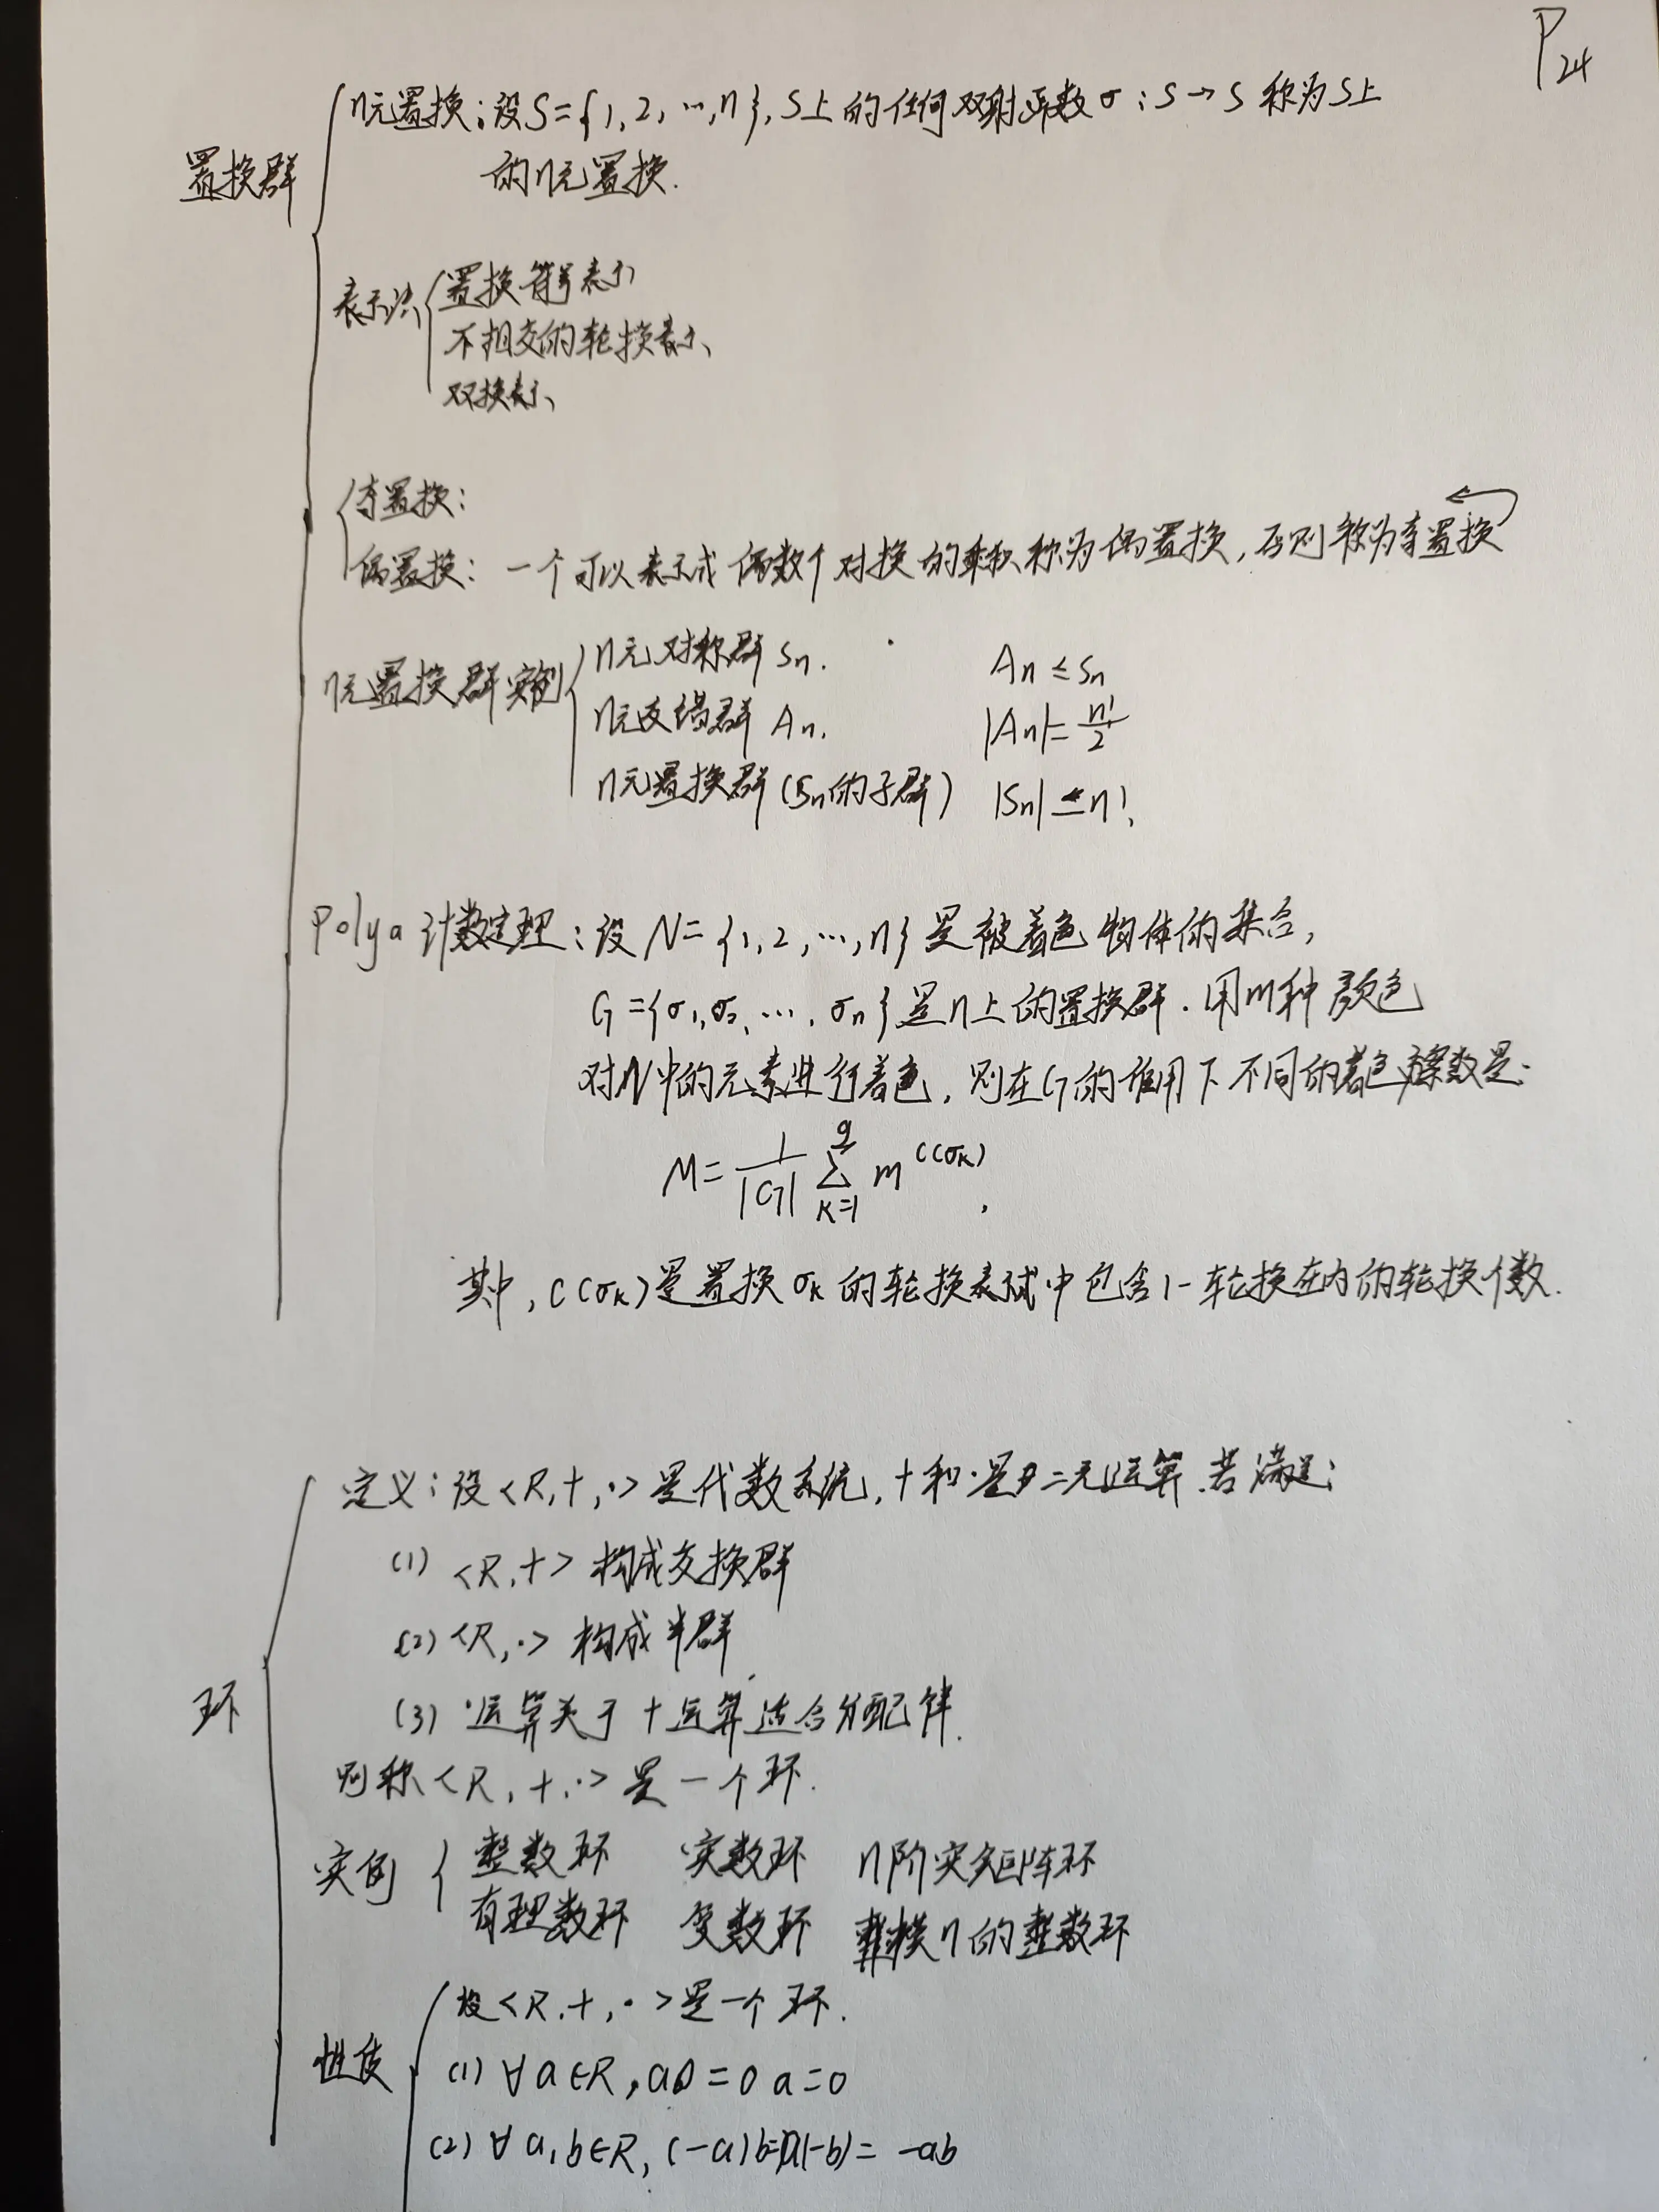 P24
n元置换：设S={1,2,…,n},S上的任何双射函数σ:S→S称为S上
的n元置换.
置换群
表示法
置换符号表示
不相交的轮换表示
对换表示
奇置换：
偶置换：一个可以表示成偶数个对换的乘积称为偶置换,否则称为奇置换
n元置换群实例
n元对称群Sn. An≤Sn
n元交错群An. |An|=n!/2
n元置换群(Sn的子群) |Sn|=n!
Polya计数定理：设N={1,2,…,n}是被着色物体的集合,
G={σ1,σ2,…,σn}是n上的置换群.用m种颜色
对N中的元素进行着色,则在G的作用下不同的着色方案数是:
M=1/|G| ∑_{k=1}^{g} m^{c(σk)},
其中,c(σk)是置换σk的轮换表示式中包含1-轮换在内的轮换个数.
定义：设<R,+,·>是代数系统,+和·是二元运算.若满足:
(1) <R,+>构成交换群
(2) <R,·>构成半群
(3) ·运算关于+运算适合分配律.
环
则称<R,+,·>是一个环.
实例
整数环 实数环 n阶实矩阵环
有理数环 复数环 模n的整数环
设<R,+,·>是一个环.
性质
(1) ∀a∈R,a0=0a=0
(2) ∀a,b∈R,(-a)b=a(-b)=-ab